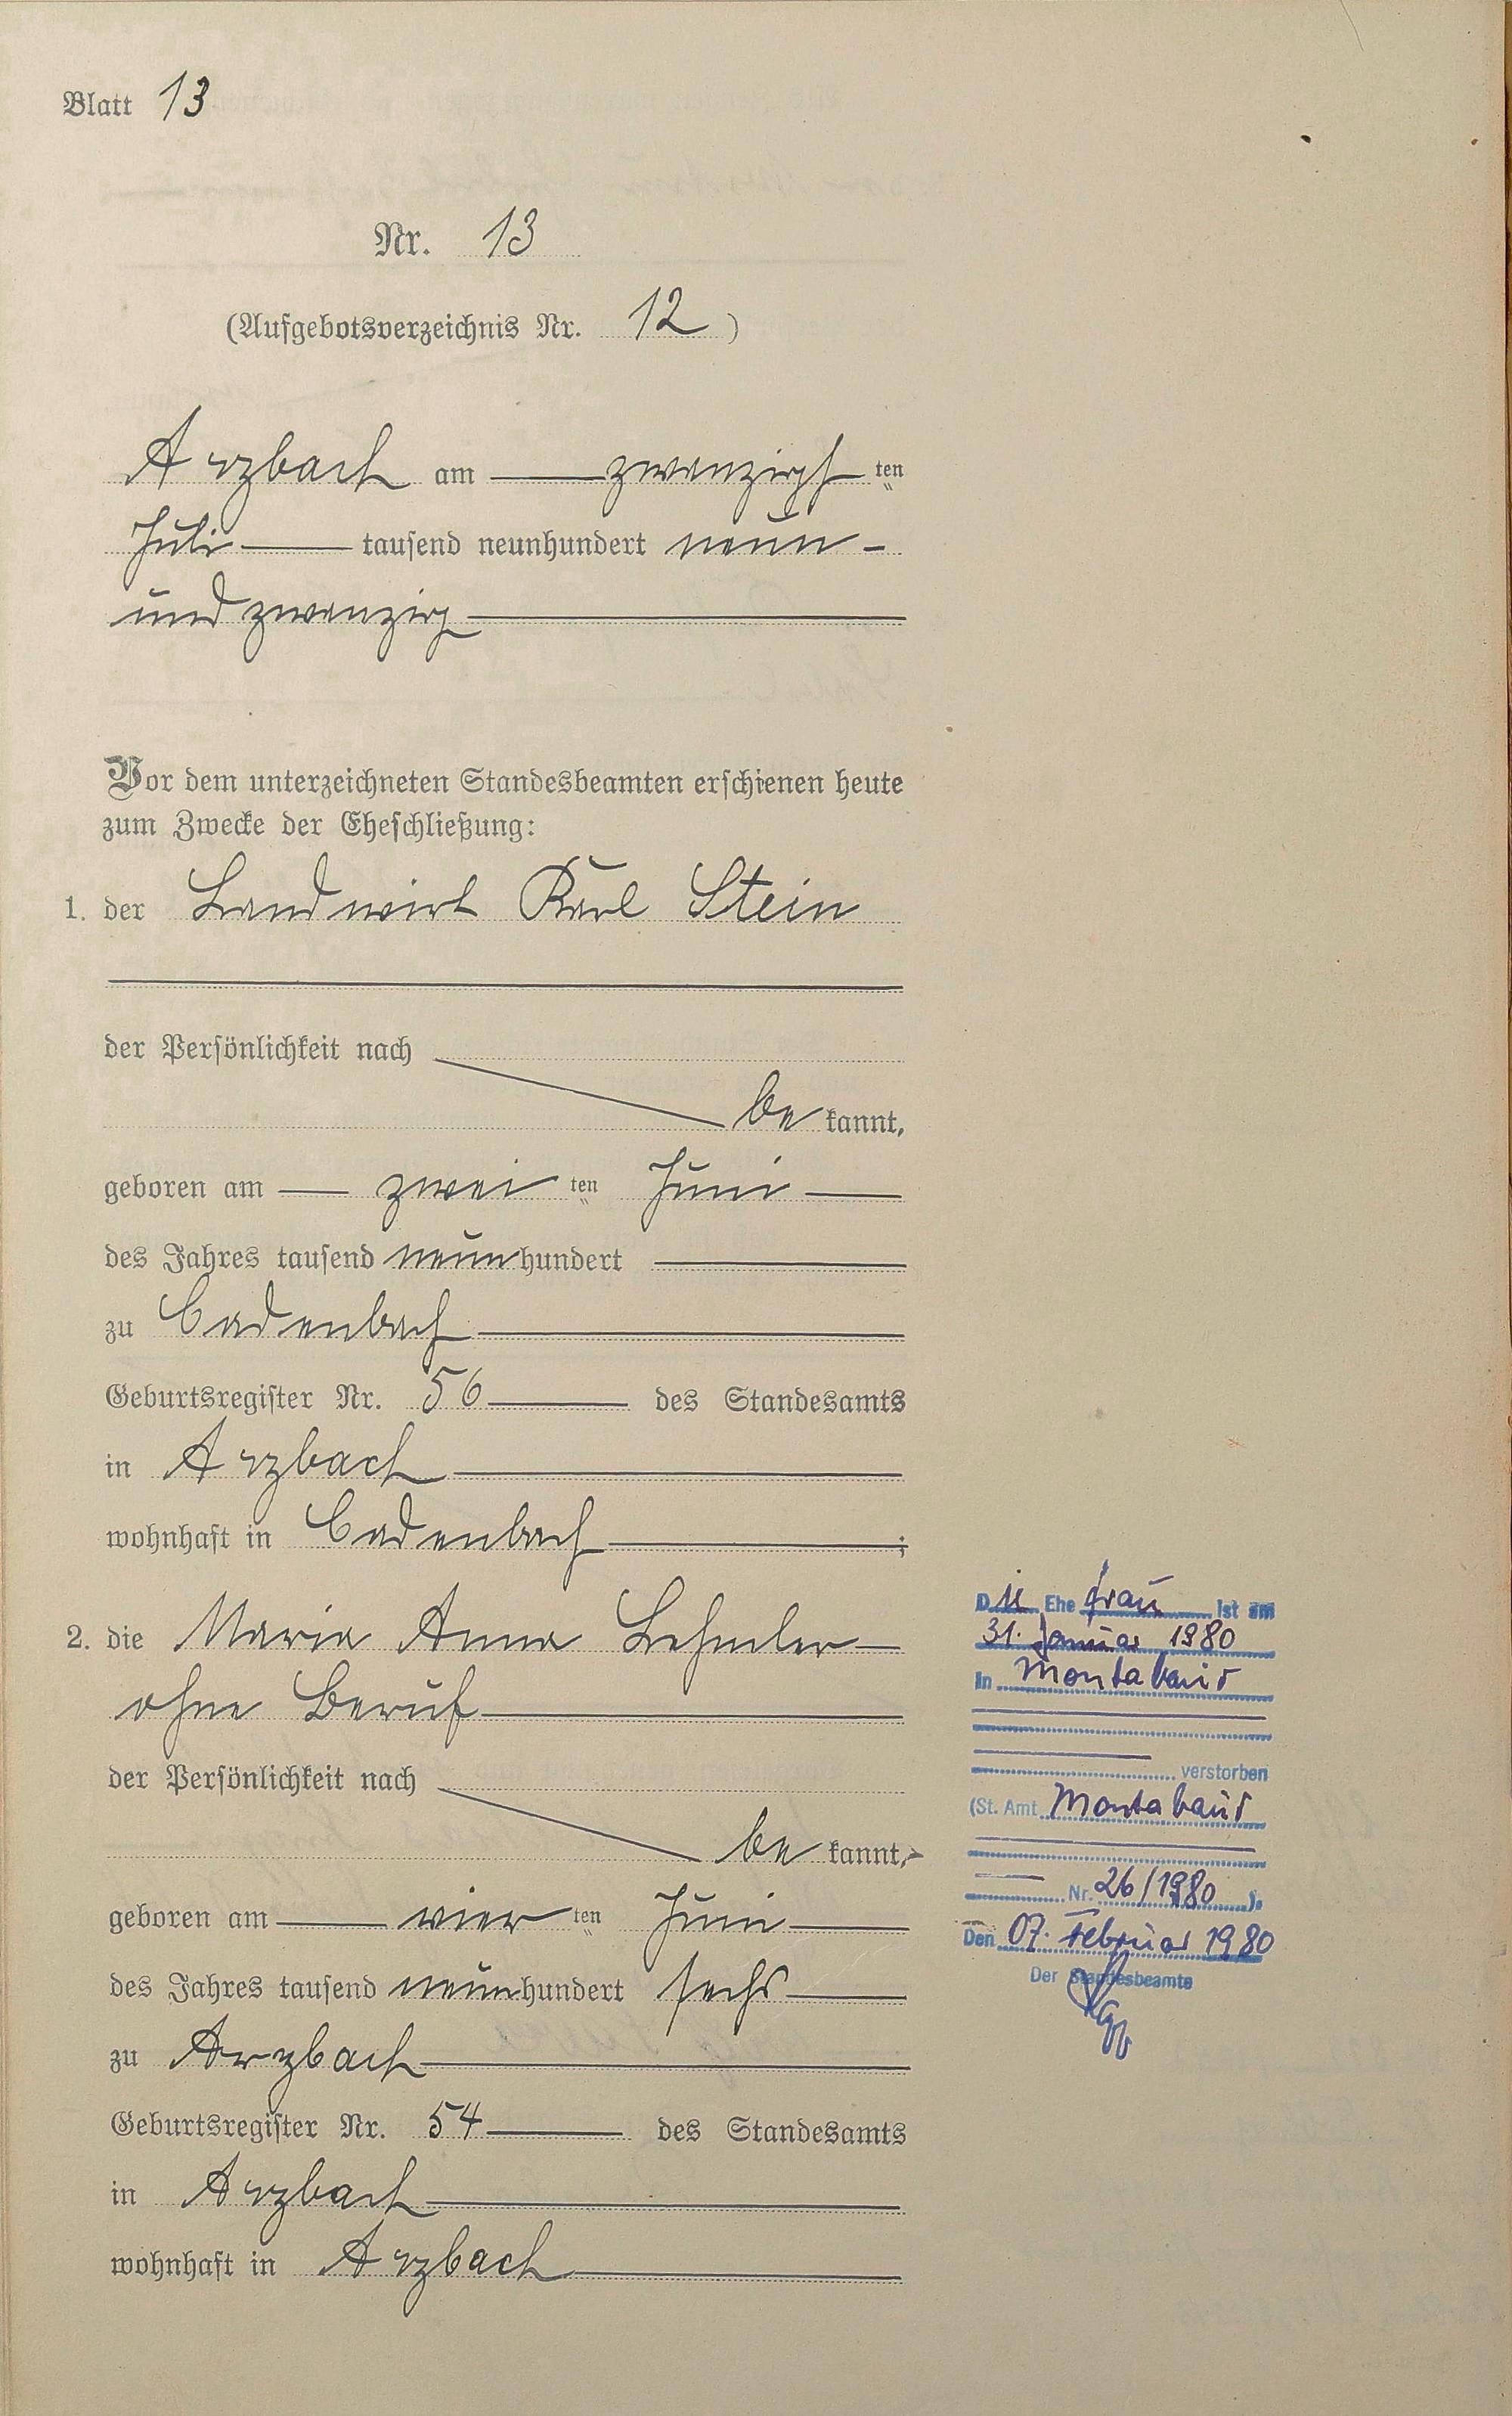 Blatt 13
Nr. 13
(Aufgebotsverzeichnis Nr. 12)
Arzbach am zwanzigsten
Juli tausend neunhundert neun-
und zwanzig
Vor dem unterzeichneten Standesbeamten erschienen heute
zum Zwecke der Eheschließung:
1. der Landwirt Karl Stein
der Persönlichkeit nach
be kannt,
geboren am zwei ten Juni
des Jahres tausend neun hundert
zu Cadenbach
Geburtsregister Nr. 56 des Standesamts
in Arzbach
wohnhaft in Cadenbach ;
2. die Maria Anna Lehmler
ohne Beruf
der Persönlichkeit nach
be kannt,
geboren am vier ten Juni
des Jahres tausend neun hundert sechs
zu Arzbach
Geburtsregister Nr. 54 des Standesamts
in Arzbach
wohnhaft in Arzbach
Die Ehe frau ist am
31. Januar 1980
in Montabaur
verstorben
(St. Amt Montabaur
Nr. 26/1980 ).
Den 07. Februar 1980
Der Standesbeamte